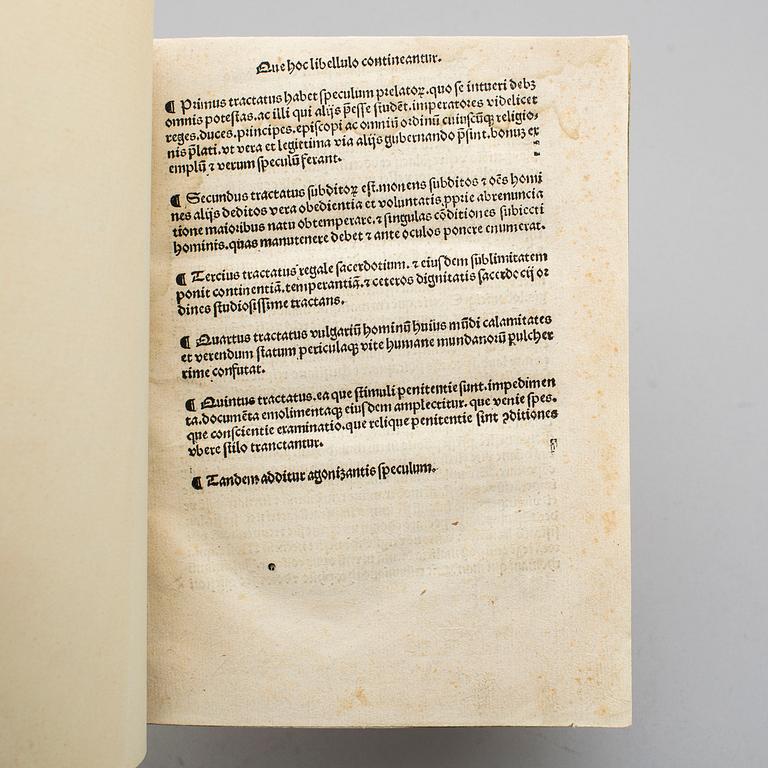 Que hoc libellulo contineantur.
¶ Primus tractatus habet speculum prelatoꝝ. quo se intueri debꝫ
omnis potestas. ac illi qui alijs p̄esse studēt. imperatores videlicet
reges. duces. principes. episcopi ac omniū ordinū cuiuscūqꝫ religio⸗
nis p̄lati. vt vera et legittima via alijs gubernando p̄sint. bonuꝫ ex
emplū ⁊ verum speculū ferant.
¶ Secundus tractatus subditoꝝ est. monens subditos ⁊ oēs homi
nes alijs deditos vera obedientia et voluntatis. ꝓprie abrenuncia
tione maioribus natu obtemperare. ⁊ singulas cōditiones subiecti
hominis. quas manutenere debet ⁊ ante oculos ponere enumerat.
¶ Tercius tractatus regale sacerdotium. ⁊ eiusdem sublimitatem
ponit continentiā. temperantiā. ⁊ ceteros dignitatis sacerdocij or
dines studiosissime tractans.
¶ Quartus tractatus vulgariū hominū huius mūdi calamitates
et verendum statum periculaqꝫ vite humane mundanorū pulcher
rime confutat.
¶ Quintus tractatus. ea que stimuli penitentie sunt. impedimen
ta. documēta emolimentaqꝫ eiusdem amplectitur. que venie spes.
que conscientie examinatio. que relique penitentie sint ꝯditiones
vbere stilo tranctantur.
¶ Tandem additur agonizantis speculum.